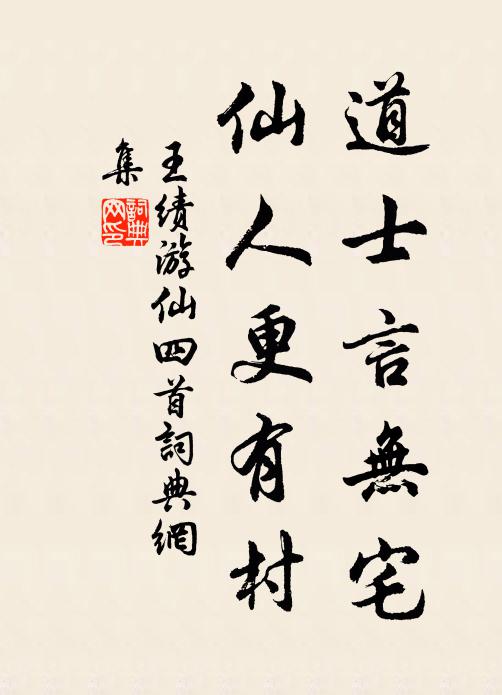 道士言無宅
仙人更有村
王績游仙四首詞典網
集
詞典網印